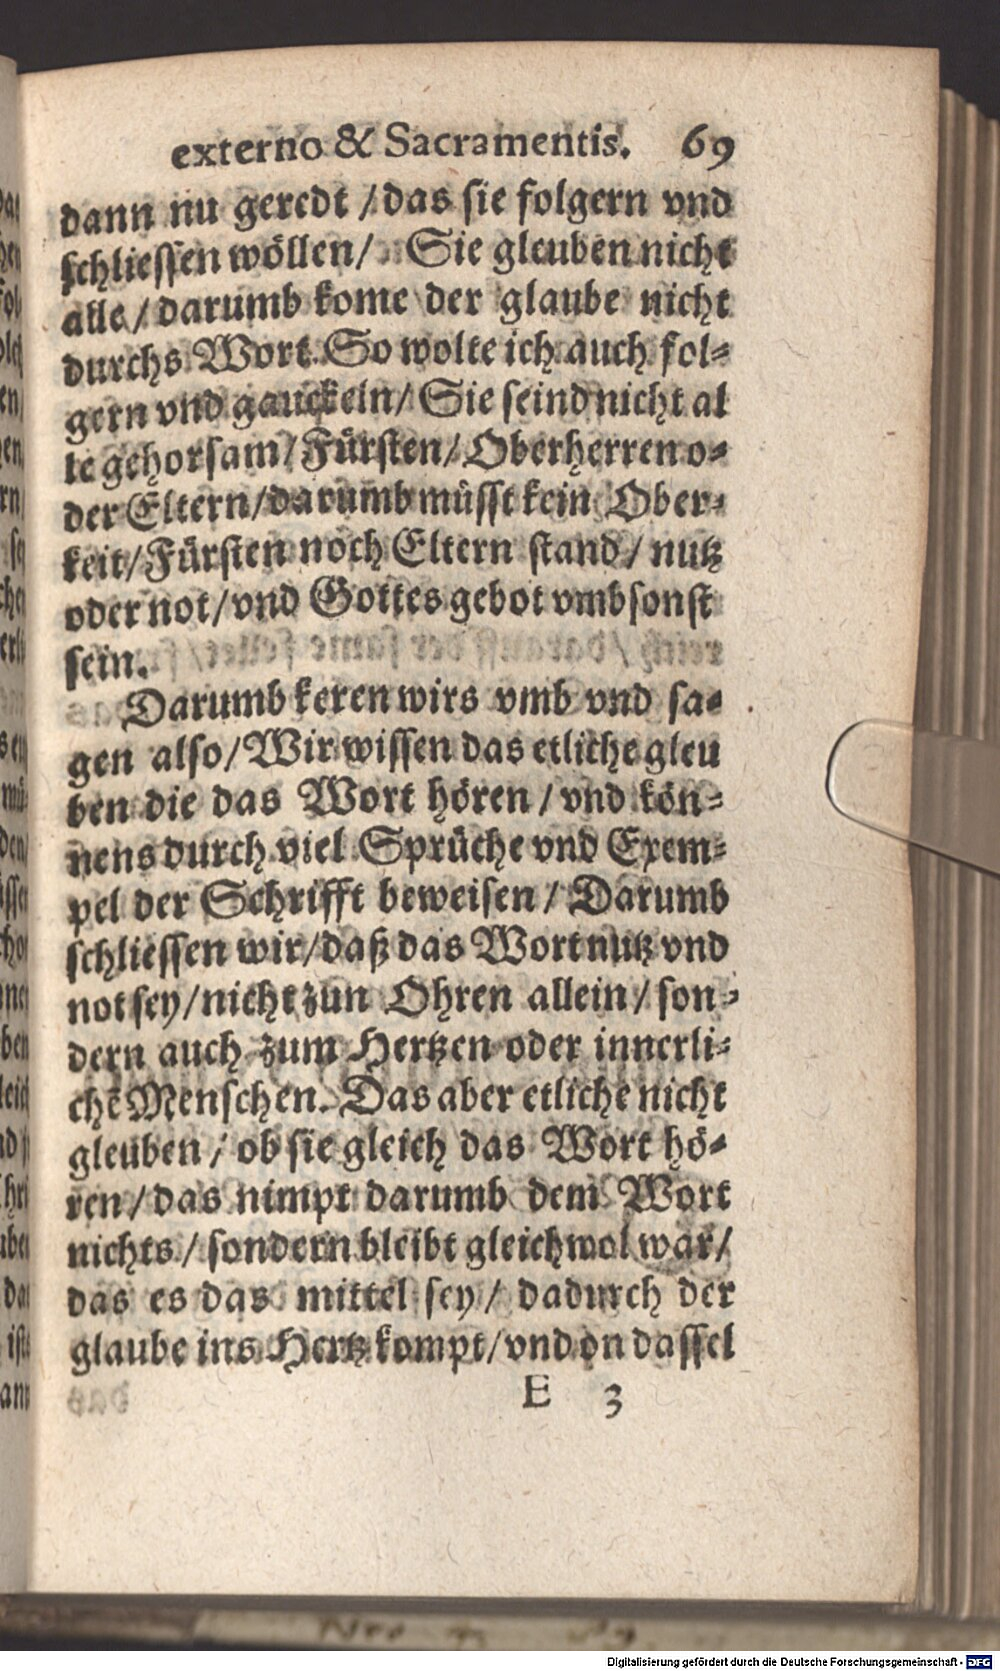 externo & Sacramentis. 69
dann nu geredt / das sie folgern vnd
schliessen wöllen / Sie gleuben nicht
alle / darumb kome der glaube nicht
durchs Wort. So wolte ich auch fol-
gern vnd gauckeln / Sie seind nicht al
le gehorsam / Fürsten / Oberherren o-
der Eltern / darumb müsst kein Ober-
keit / Fürsten noch Eltern stand / nutz
oder not / vnd Gottes gebot vmbsonst
sein.
Darumb keren wirs vmb vnd sa-
gen also / Wir wissen das etliche gleu
ben die das Wort hören / vnd kön-
nens durch viel Sprüche vnd Exem-
pel der Schrifft beweisen / Darumb
schliessen wir / daß das Wort nutz vnd
not sey / nicht zun Ohren allein / son-
dern auch zum Hertzen oder innerli-
chē Menschen. Das aber etliche nicht
gleuben / ob sie gleich das Wort hö-
ren / das nimpt darumb dem Wort
nichts / sondern bleibt gleichwol war /
das es das mittel sey / dadurch der
glaube ins Hertz kompt / vnd on dassel
E 3
Digitalisierung gefördert durch die Deutsche Forschungsgemeinschaft - DFG